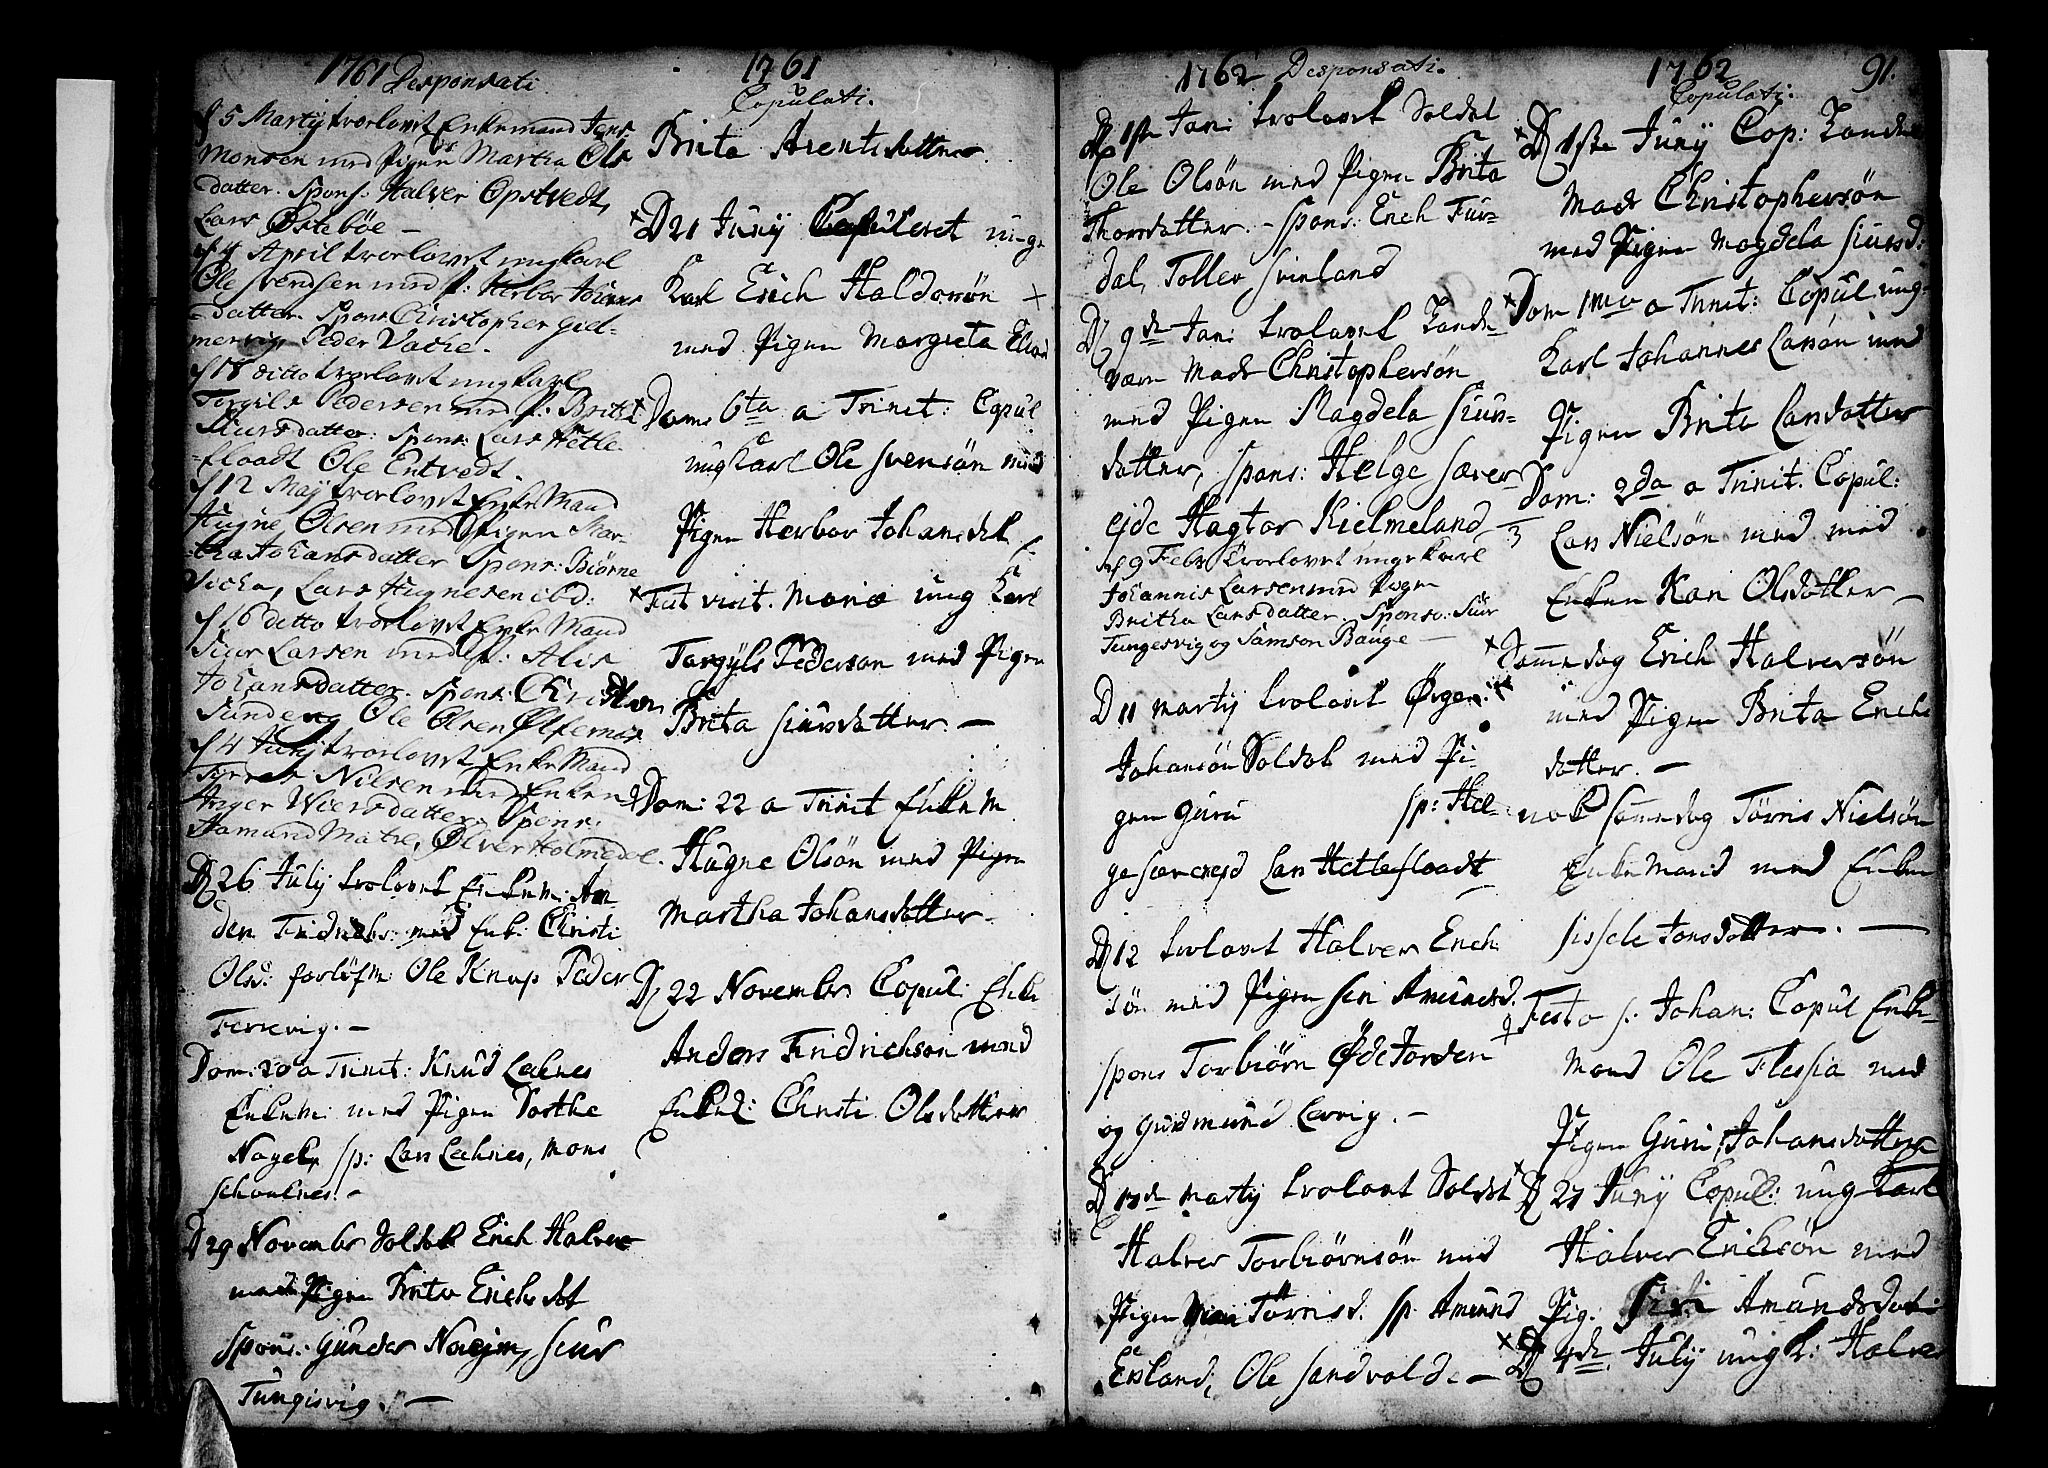 1761 Desponsati
d 5 Martij trorlovet Enkemand Jens
Monsen med Pigen Martha Ols
datter. Spons: Halver Opstvedt,
Lars Østebøe —
d 4 April trorlovet ungkarl
Ole Svendsen med p: Herbor Johans
datter. Spons Christopher Giel-
mervig Peder Vache.
d 18 ditto trorlovet ungkarl
Torgils Pedersen med p: Britha
Siursdatter. Spons: Lars Hetle-
floadt Ole Entvedt.
d 12 Maij trorlovet Enke Mand
Hugne Olsen med Pigen Mar-
tha Johansdatter Spons: Biørne
Vicha, Lars Hugnesen ibd:
d 16 ditto trorlovet Enke Mand
Siur Larsen med p: Alis
Johansdatter. Spons: Christen
Sundeng Ole Olsen Ølfernes
d 4 Junij trorlovet Enke Mand
Tørres Nilsen med Enken
Inger Wiersdatter, Spons:
Hamund Matre, Ølver Holmedal.
D 26 July trolovet Enkem: An-
ders Fridrichs: med Enk: Christi
Olsd: forlofm: Ole Knap Peder
Ferrevig. —
Dom: 20 a Trinit: Knud Lechnes
Enkem: med Pigen Dorthe
Nagel, sp: Lars Lechnes, Mons
Schonlnes. —
D 29 Novembr Soldat Erich Halvers
med Pigen Brita Erichsdat
spons: Gunder Nærjm, Siur
Tungisvig. —
1761
Copulati.
Brita Arentsdatter.
D 21 Junij Copuleret unge
Karl Erich Haldorsøn
med Pigen Margreta Elias
Dom: 6ta a Trinit: Copul
ungkarl Ole Svensøn med
Pigen Herbor Johansdat
Fest visit. Mariæ ung Karl
Torgyls Pederson med Pigen
Brita Siursdatter. —
Dom: 22 a Trinit Enkem
Hugne Olsøn med Pigen
Martha Johansdatter.
D 22 Novembr Copul: Enke
Anders Fridrichsøn med
Enked: Christi Olsdatter
1762 Desponsati.
D 1ste Jan: trolovet Soldat
Ole Olsøn med Pigen Brita
Thorsdatter. - Spons: Erich Fur-
dal, Tollev Svinland
D 9de Jan: trolovet Lands
værn Mads Christophersøn
med Pigen Magdela Siurs-
datter, spons: Helge Særer-
ejde Hagtor Kielmeland
d 9 Febr trorlovet unge Karl
Johannis Larsen med Pigen
Britha Larsdatter. Sponso: Siur
Tungesvig og Samson Bauge —
D 11 Martij trolovet Ørgen:
Johansøn Soldat med Pi-
gen Guru sp: Hel-
ge Særerejd Lars Hetlefloadt
D 12 trolovet Halver Erich
søn med Pigen Siri Amundsd.
spons Torbiørn Ødejorden
og Gudmund Lervig. —
D 13de Martij trolovet Soldat
Halver Torbiørnsøn med
Pigen Tørrisd. sp. Amund
Eisland, Ole Sandvold. —
1762 91.
Copulati.
D 1ste Junij Cop: Lands
Mads Christophersøn
med Pigen Magdela Siursd:
Dom 1ma a Trinit: Copul: ung-
Karl Johannes Larsøn med
Pigen Brite Larsdatter
Dom: 2da a Trinit. Copul:
Lars Nielsøn med med
Enken Kari Olsdatter —
Samme dag Erich Halversøn
med Pigen Brita Erichs
datter. —
nok Samme dag Tørris Nielsøn
Enkemand med Enken
Sissele Jonsdatter. —
Festo S: Johan: Copul Enke-
mand Ole Flessia med
Pigen Guri Johansdatter
D 27 Junij Copul: ung Karl
Halver Erichsøn med
Pig: Siri Amundsdat:
D 4de July ungk: Halver